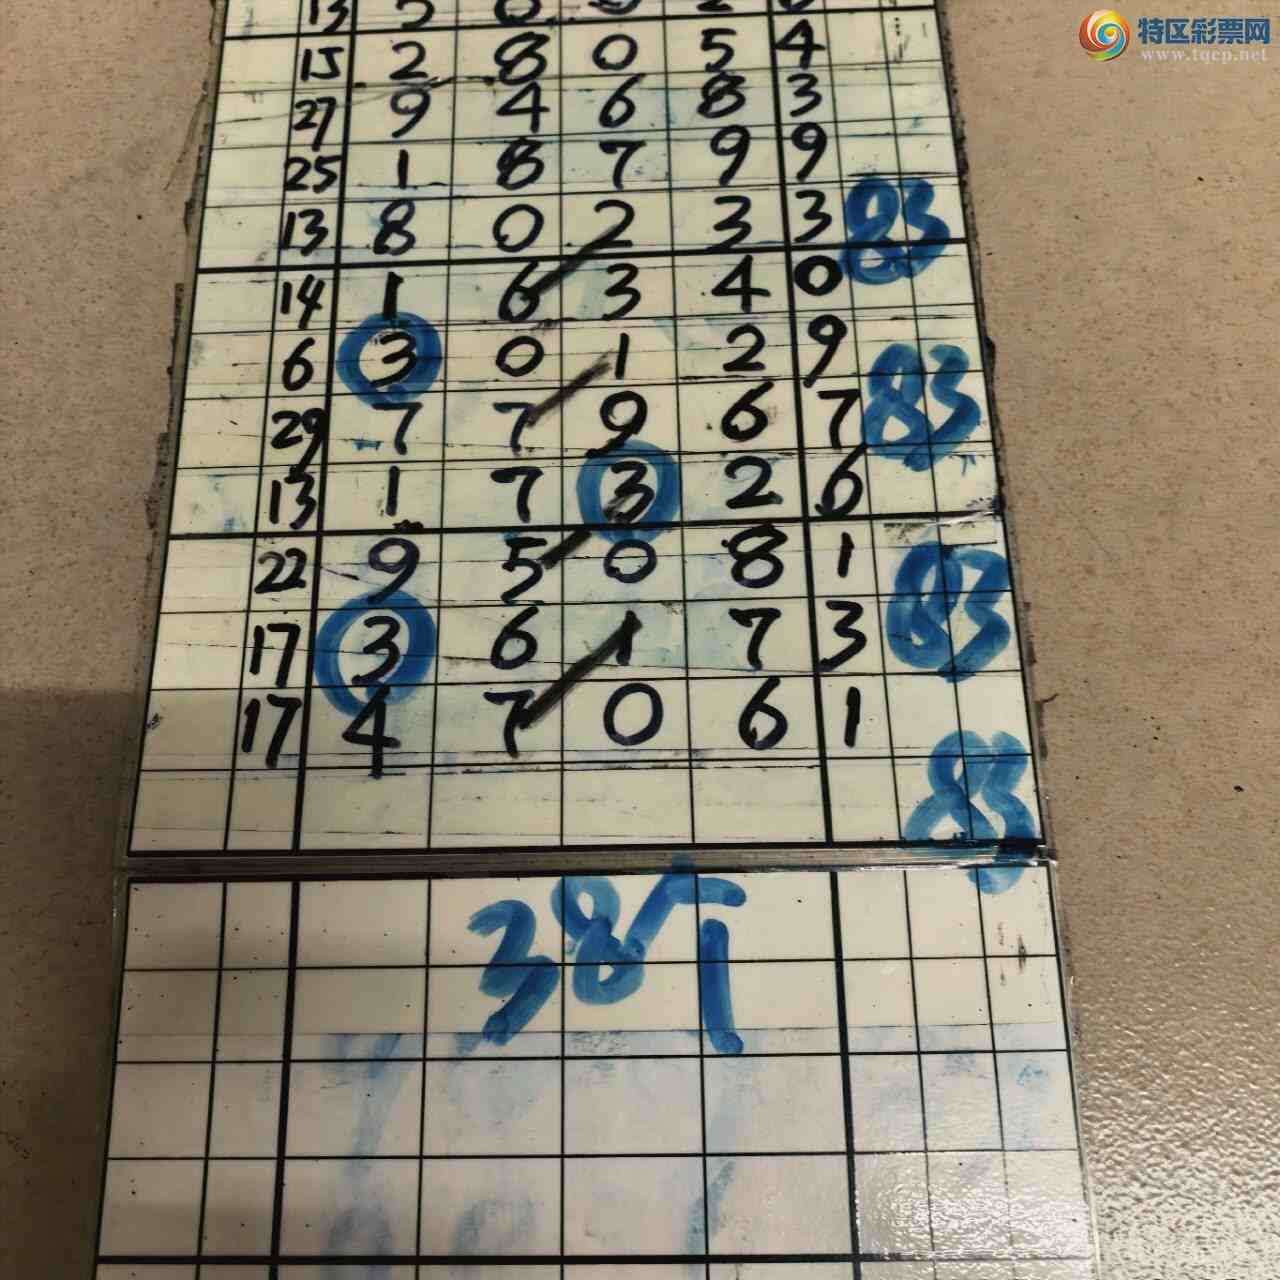 特区彩票网
www.tqcp.net
15 2 8 0 5 4
27 9 4 6 8 3
25 1 8 7 9 9
13 8 0 2 3 3 83
14 1 6 3 4 0
6 3 0 1 2 9
29 7 7 9 6 7 83
13 1 7 3 2 6
22 9 5 0 8 1
17 3 6 1 7 3 83
17 4 7 0 6 1
83
38